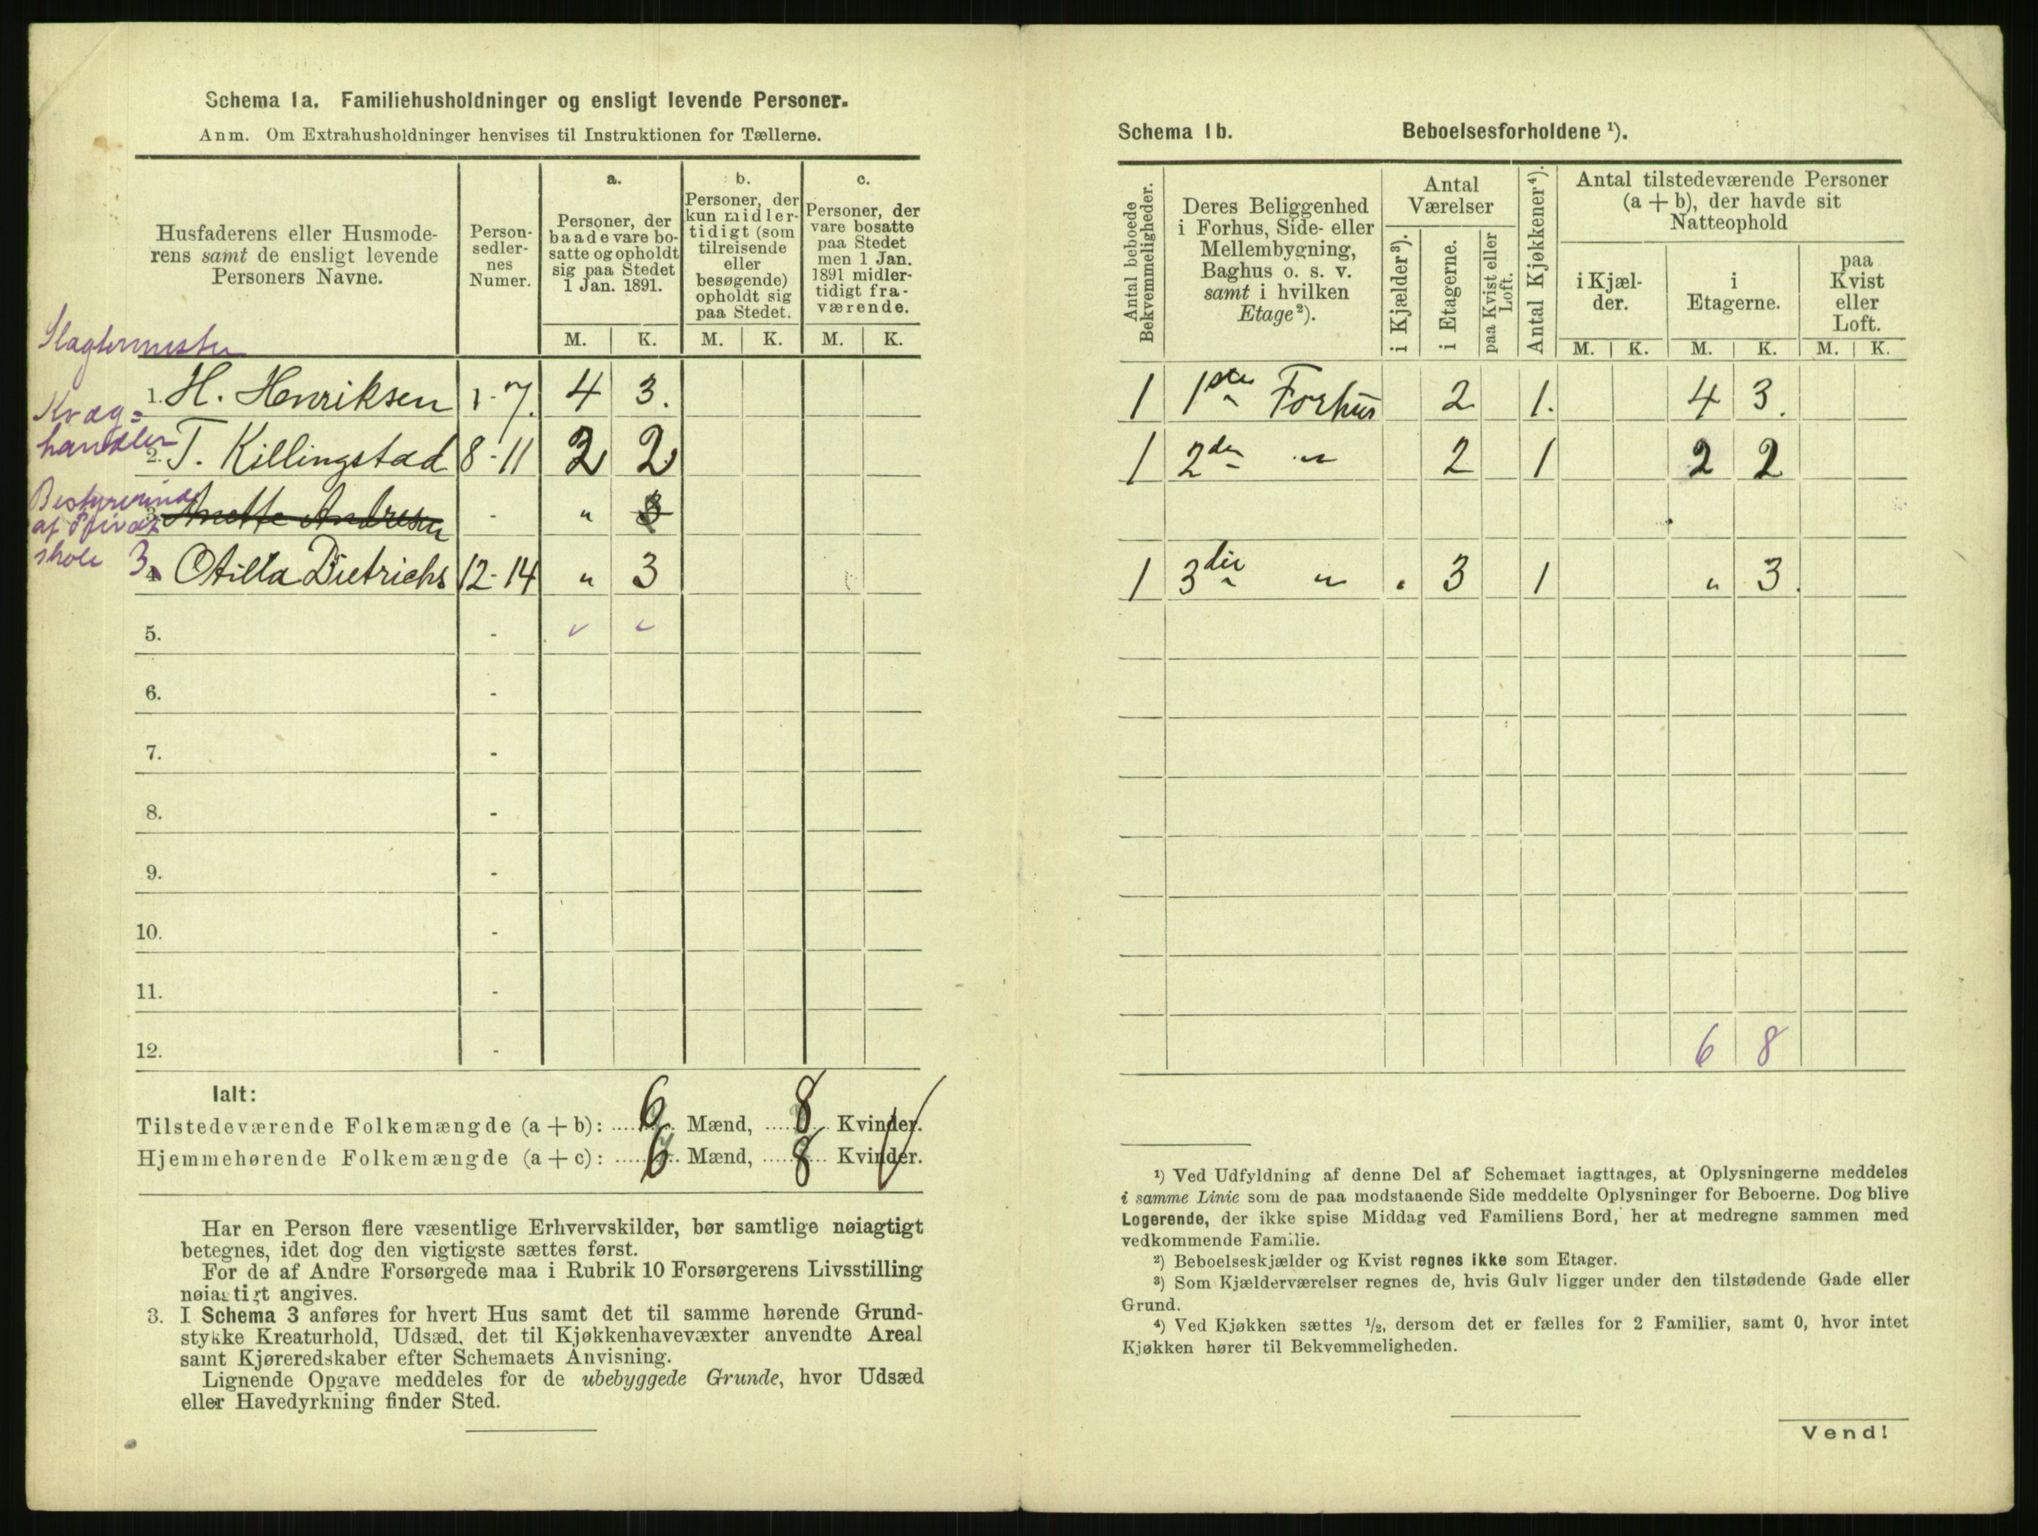 Schema 1a. Familiehusholdninger og ensligt levende Personer.
Anm. Om Extrahusholdninger henvises til Instruktionen for Tællerne.
Husfaderens eller Husmode-
rens samt de ensligt levende
Personers Navne.
Person-
sedler-
nes
Numer.
a.
Personer, der
baade vare bo-
satte og opholdt
sig paa Stedet
1 Jan. 1891.
b.
Personer, der
kun midler-
tidigt (som
tilreisende
eller
besøgende)
opholdt sig
paa Stedet.
c.
Personer, der
vare bosatte
paa Stedet
men 1 Jan.
1891 midler-
tidigt fra-
værende.
M. K. M. K. M. K.
Slagtermester
1. H. Henriksen 1-7. 4 3.
Kvæg-
handler
2. T. Killingstad 8-11 2 2
Bestyrerinde
af Privat
skole
3. Anette Andresen - " 3
3 4. Otilla Dietrichs 12-14 " 3
5. -
6. -
7. -
8. -
9. -
10. -
11. -
12. -
Ialt:
Tilstedeværende Folkemængde (a + b): 6 Mænd, 8 Kvinder.
Hjemmehørende Folkemængde (a + c): 6 Mænd, 8 Kvinder.
Har en Person flere væsentlige Erhvervskilder, bør samtlige nøiagtigt
betegnes, idet dog den vigtigste sættes først.
For de af Andre Forsørgede maa i Rubrik 10 Forsørgerens Livsstilling
nøiagtigt angives.
3. I Schema 3 anføres for hvert Hus samt det til samme hørende Grund-
stykke Kreaturhold, Udsæd, det til Kjøkkenhavevæxter anvendte Areal
samt Kjøreredskaber efter Schemaets Anvisning.
Lignende Opgave meddeles for de ubebyggede Grunde, hvor Udsæd
eller Havedyrkning finder Sted.
Schema 1b. Beboelsesforholdene ¹).
Antal beboede
Bekvemmeligheder.
Deres Beliggenhed
i Forhus, Side- eller
Mellembygning,
Baghus o. s. v.
samt i hvilken
Etage²).
Antal
Værelser
i Kjælder³).
i Etagerne.
paa Kvist eller
Loft.
Antal Kjøkkener⁴).
Antal tilstedeværende Personer
(a + b), der havde sit
Natteophold
i Kjæl-
der.
i
Etagerne.
paa
Kvist
eller
Loft.
M. K. M. K. M. K.
1 1ste Forhus 2 1. 4 3.
1 2den " 2 1 2 2
1 3die " 3 1 " 3.
6 8
¹) Ved Udfyldning af denne Del af Schemaet iagttages, at Oplysningerne meddeles
i samme Linie som de paa modstaaende Side meddelte Oplysninger for Beboerne. Dog blive
Logerende, der ikke spise Middag ved Familiens Bord, her at medregne sammen med
vedkommende Familie.
²) Beboelseskjælder og Kvist regnes ikke som Etager.
³) Som Kjælderværelser regnes de, hvis Gulv ligger under den tilstødende Gade eller
Grund.
⁴) Ved Kjøkken sættes ½, dersom det er fælles for 2 Familier, samt 0, hvor intet
Kjøkken hører til Bekvemmeligheden.
Vend!